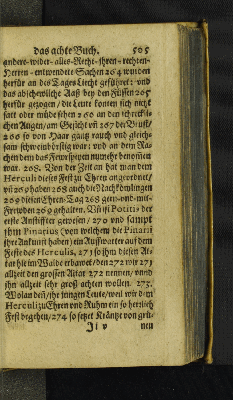 das achte Buch. 505
andere-wider-alles-Recht-ihren-rechten-
Herren-entwendete Sachen 264 wurden
herfür an des Tages Liecht geführet: und
das abscheuliche Aaß bey den Füssen 265
herfür gezogen / die Leute konten sich nicht
satt oder müde sehen 266 an den schreckli-
chen Augen / am Gesicht vñ 267 der Brust /
268 so von Haar gantz rauch und gleich-
sam schweinbörstig war: und an dem Ra-
chen dem das Fewrspeyen nunmehr benommen
war. 268. Von der Zeit an hat man dem
Herculi dieses Fest zu Ehren angeordnet /
vñ 269 haben 268 auch die Nachkömlingen
269 diesen Ehren-Tag 268 gern-und-mit-
Frewden 269 gehalten. Vñ ist Potitius der
erste Anstiffter gewesen / 270 und sampt
jhm Pinarius (von welchem die Pinarii
ihre Ankunft haben) ein Auffwarter auf dem
Feste des Herculis, 271 so ihm diesen Al-
tar hie im Walde erbawet / den 272 wir 271
allzeit den grossen Altar 272 nennen / unnd
ihn allzeit sehr groß achten wollen. 273.
Wolan deß / ihr jungen Leute / weil wir dem
Herculi zu Ehren und Ruhm ein so herrlich
Fest begehen / 274 so setzet Kräntze von grü-
Ii v nen